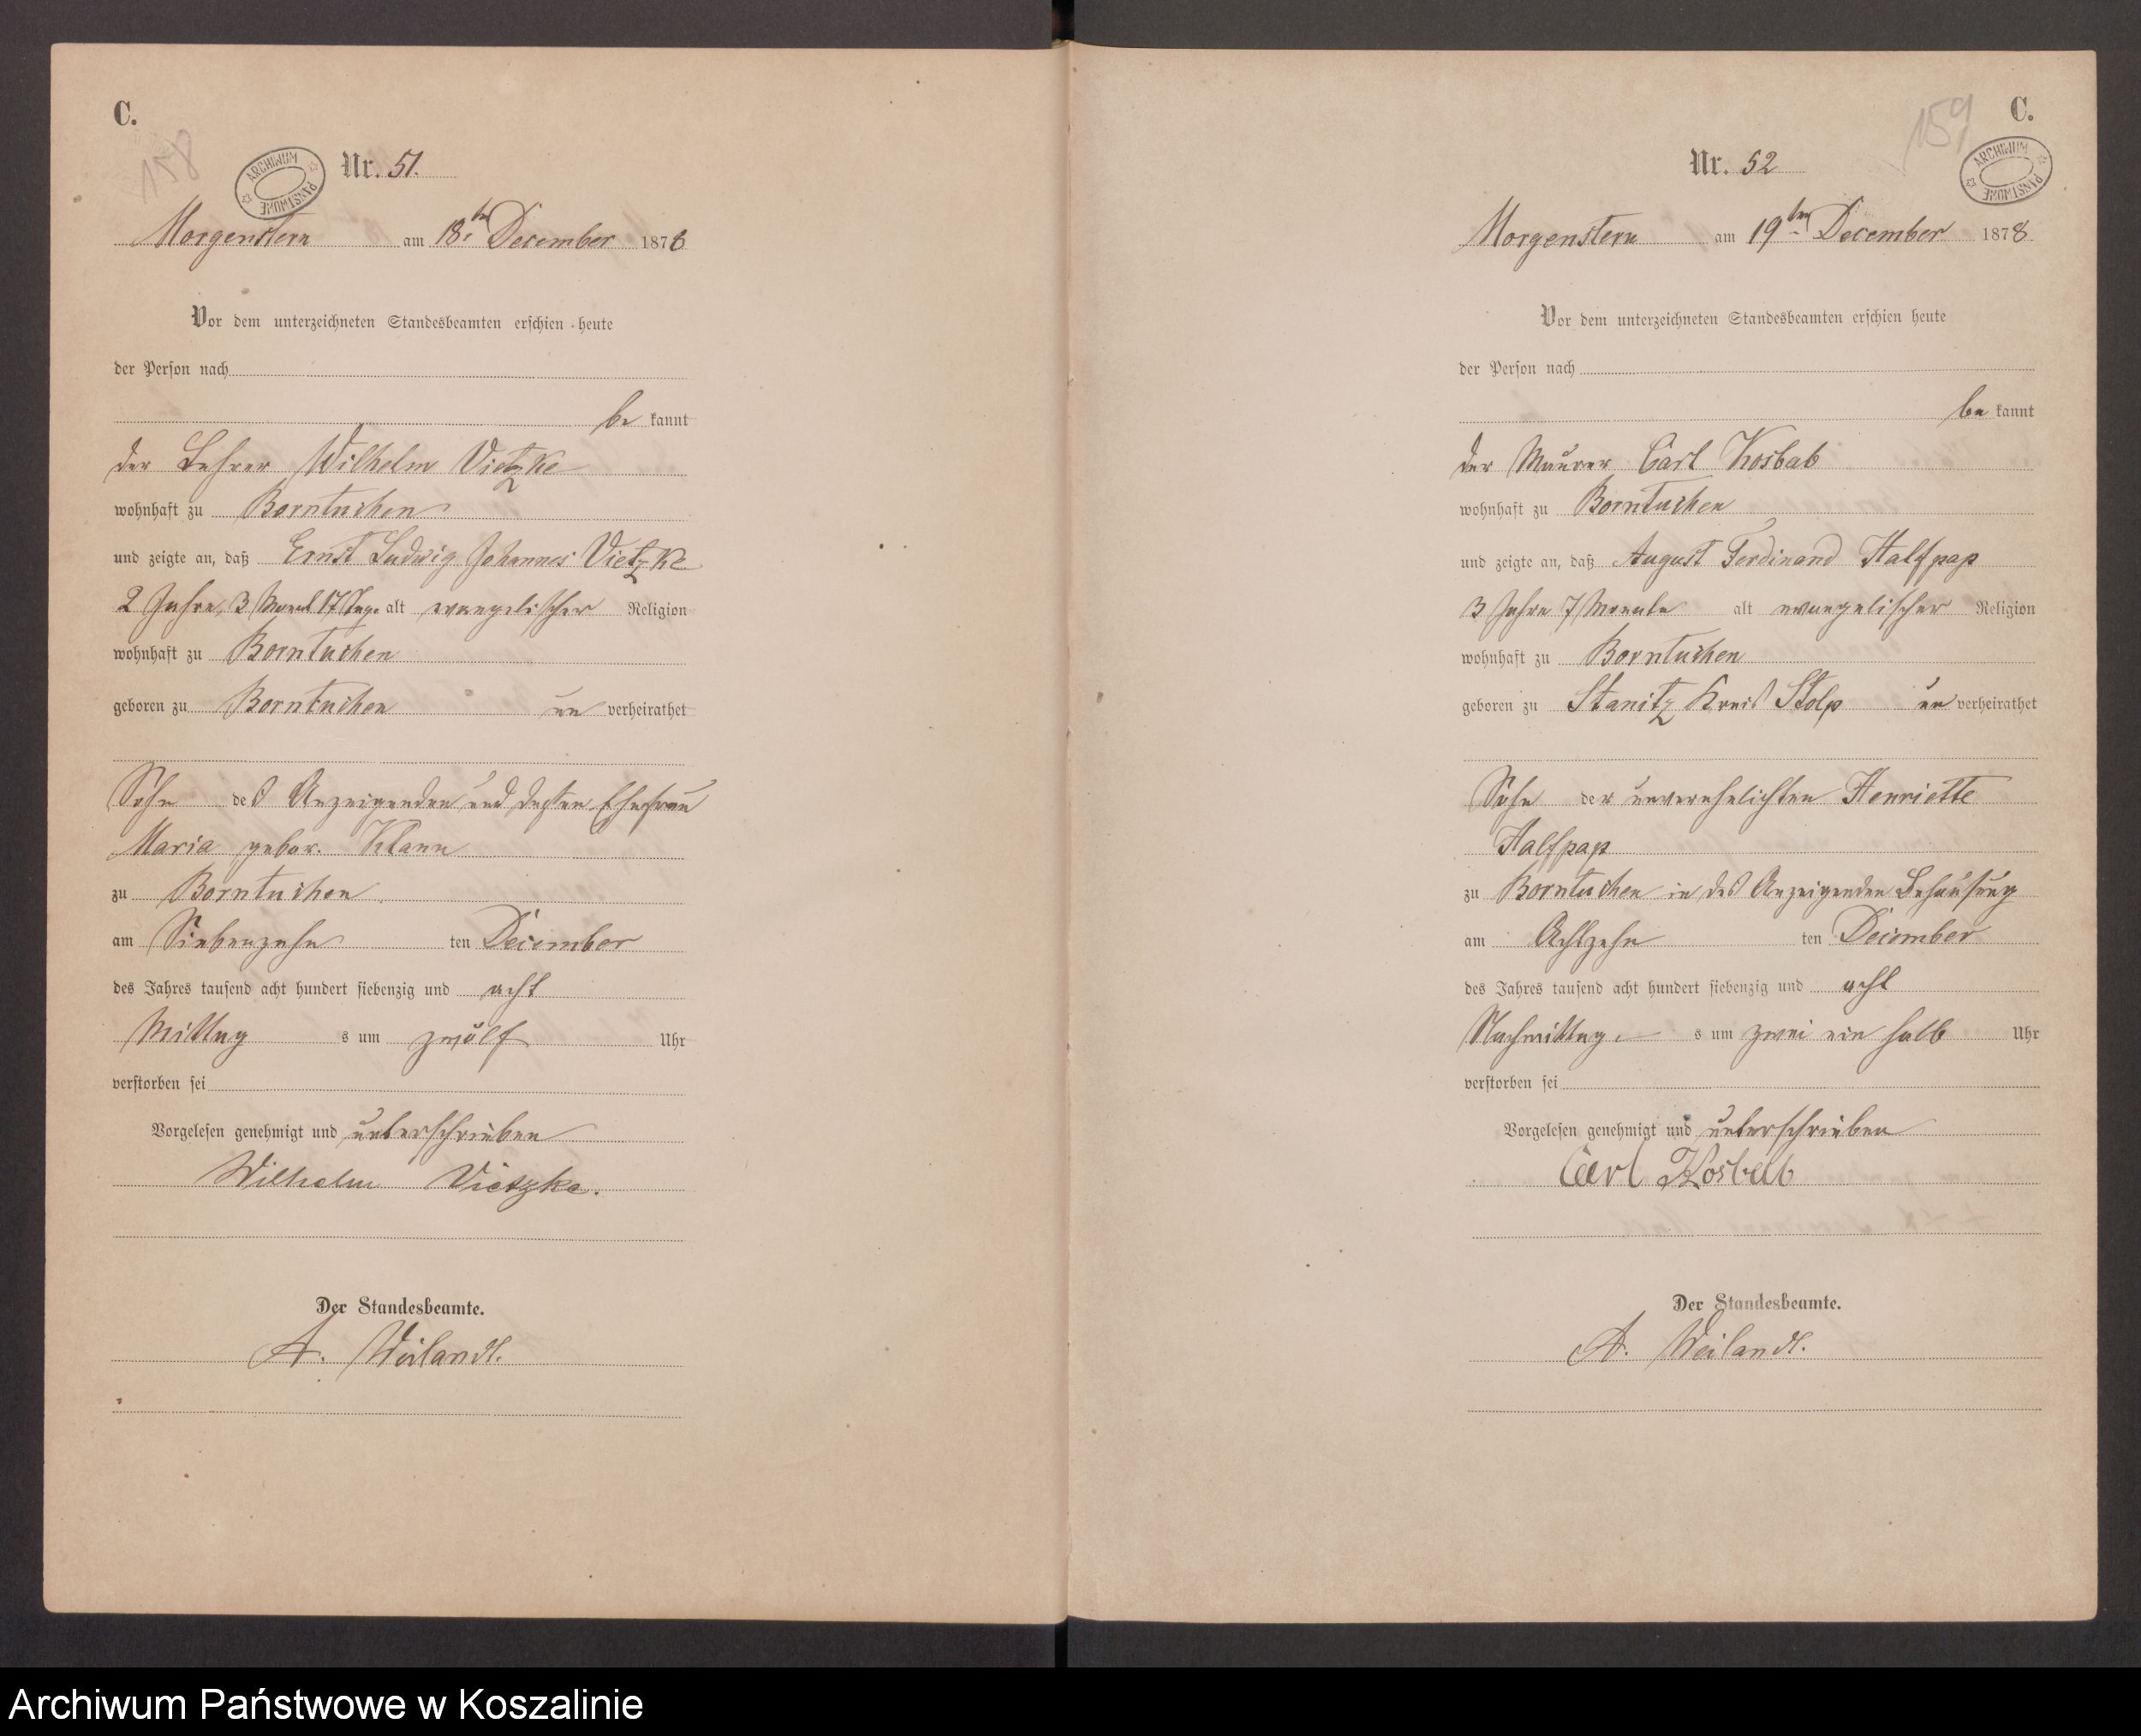 C.
158
ARCHIWUM PAŃSTWOWE
Nr. 51.
Morgenstern am 18ten December 1878
Vor dem unterzeichneten Standesbeamten erschien heute
der Person nach
be kannt
der Lehrer Wilhelm Vietzke
wohnhaft zu Borntuchen
und zeigte an, daß Ernst Ludwig Johannes Vietzke
2 Jahre, 3 Monat 17 Tage alt evangelischer Religion
wohnhaft zu Borntuchen
geboren zu Borntuchen un verheirathet
Sohn des Anzeigenden und dessen Ehefrau
Maria gebor. Klann
zu Borntuchen
am Siebenzehn ten December
des Jahres tausend acht hundert siebenzig und acht
Mittag s um zwölf Uhr
verstorben sei
Vorgelesen genehmigt und unterschrieben
Wilhelm Vietzke.
Der Standesbeamte.
A. Weilandt.
C.
159
ARCHIWUM PAŃSTWOWE
Nr. 52
Morgenstern am 19ten December 1878
Vor dem unterzeichneten Standesbeamten erschien heute
der Person nach
be kannt
der Maurer Carl Kosbab
wohnhaft zu Borntuchen
und zeigte an, daß August Ferdinand Halfpap
3 Jahre 7 Monate alt evangelischer Religion
wohnhaft zu Borntuchen
geboren zu Stanitz Kreis Stolp un verheirathet
Sohn der unverehelichten Henriette
Halfpap
zu Borntuchen in des Anzeigenden Behausung
am Achtzehn ten December
des Jahres tausend acht hundert siebenzig und acht
Nachmittag s um zwei ein halb Uhr
verstorben sei
Vorgelesen genehmigt und unterschrieben
Carl Kosbab
Der Standesbeamte.
A. Weilandt.
Archiwum Państwowe w Koszalinie